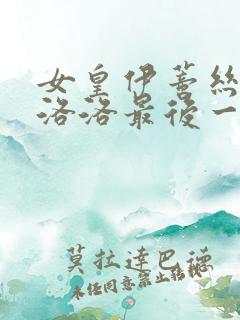 女皇伊蒼絲
洛洛最後一
莫拉達巴德
未任同意禁止轉載